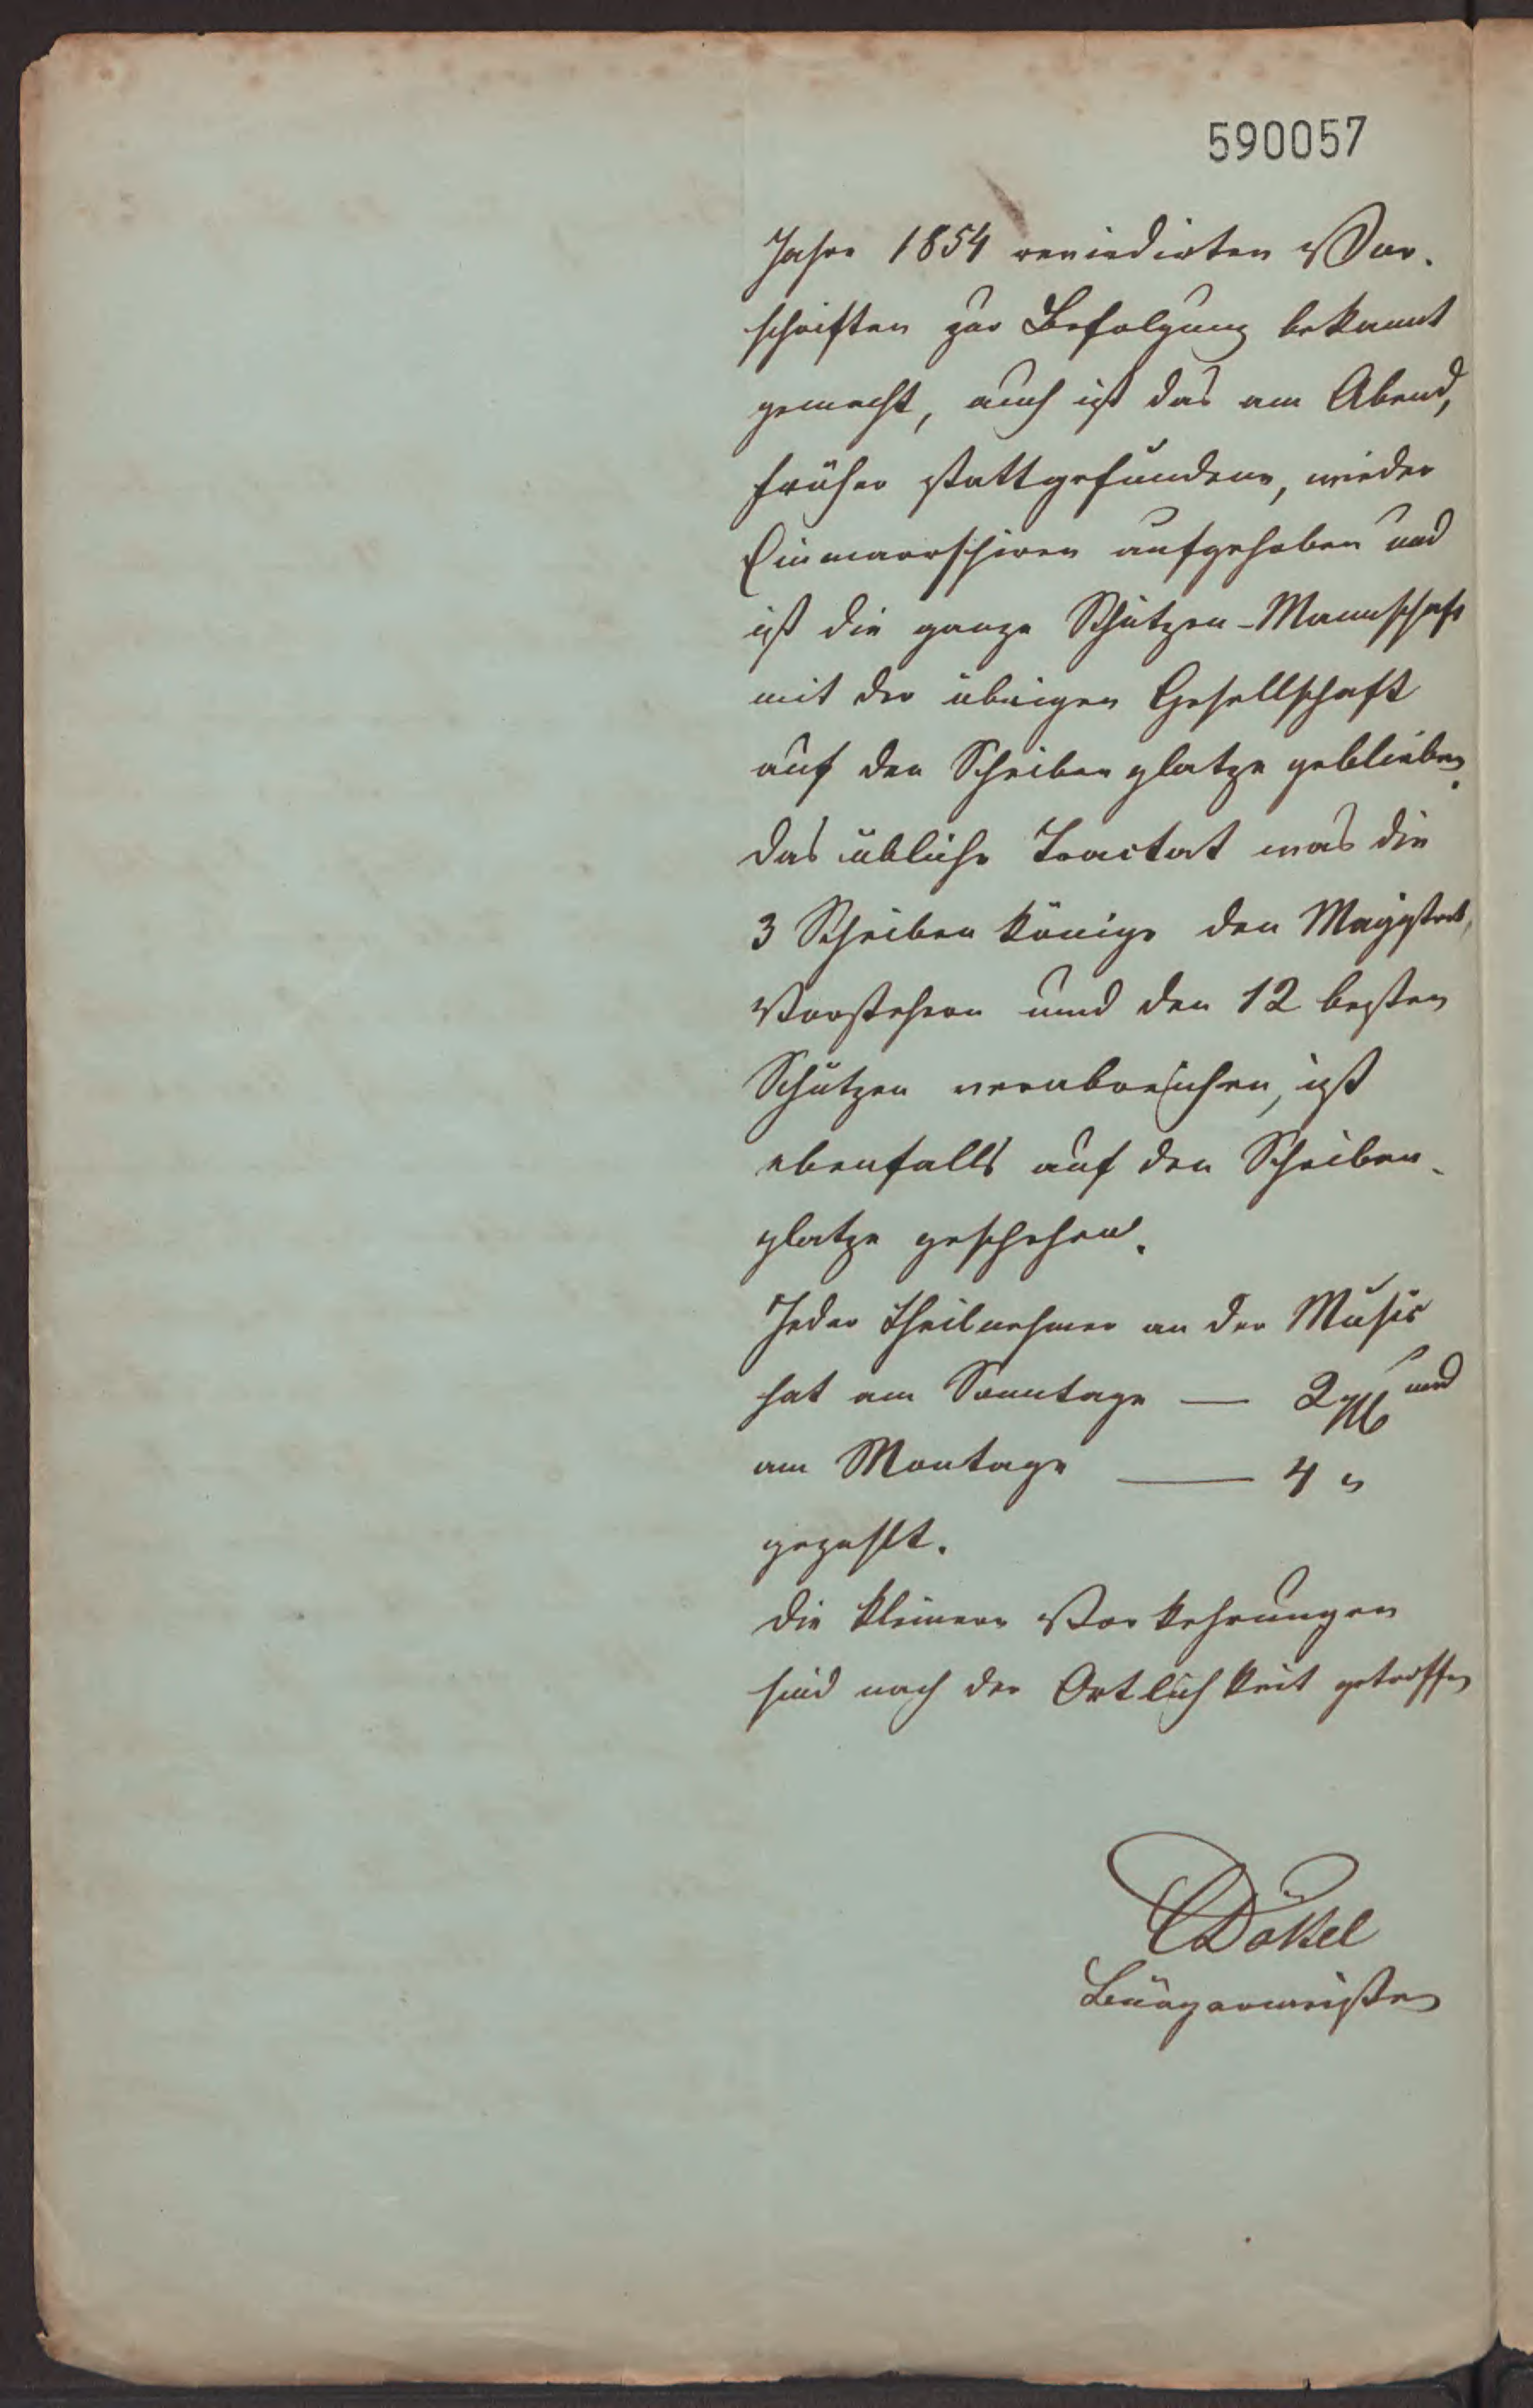 590057
Jahre 1854 reviedirten Vor-
schriften zur Befolgung bekannt
gemacht, auch ist das am Abend,
früher stattgefundene, wieder
Einmarrschiren aufgehoben und
ist die ganze Schützen-Mannschaft
mit der übrigen Gesellschaft
auf den Scheibenplatze geblieben.
Das übliche Tractat was die
3 Scheiben Könige den Magistrat,
Vorstehern und den 12 besten
Schützen verabreichen, ist
ebenfalls auf den Scheiben-
platze geschehen.
Jeder Theilnehmer an der Music
hat am Sonntage — 2 und
am Montage — 4 "
gezahlt.
Die kleinere Vorkehrungen
sind nach der Ortlichkeit getroffen
Dökel
Bürgermeister